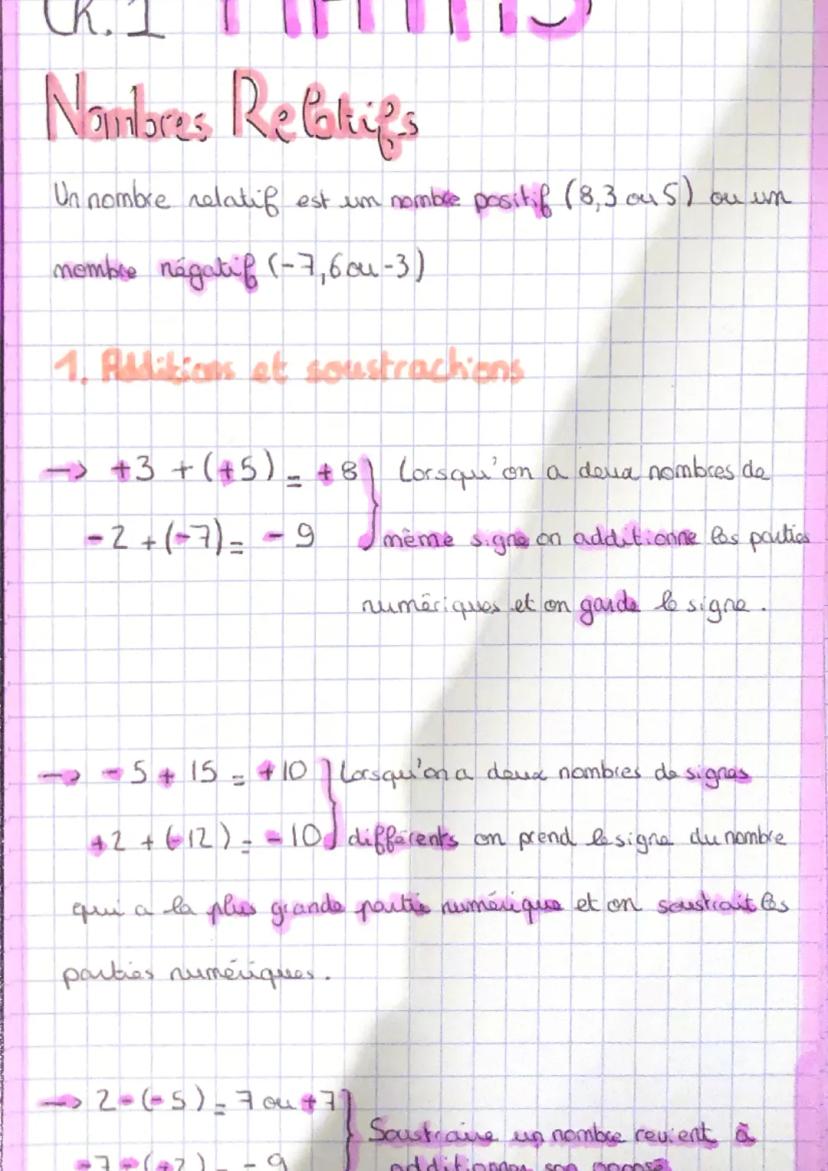 Ch.1 MATHS
Nombres Relatifs
Un nombre relatif est un nombre positif (8,3 ou 5) ou un
nombre négatif (-7,6 ou -3)
1. Additions et soustractions
→ +3 + (+5) = +8 } Lorsqu'on a deux nombres de
-2 + (-7) = -9 même signe on additionne les parties
numériques et on garde le signe.
→ -5 + 15 = +10 } Lorsqu'on a deux nombres de signes
+2 + (-12) = -10 différents on prend le signe du nombre
qui a la plus grande partie numérique et on soustrait les
parties numériques.
→ 2-(-5) = 7 ou +7 } Soustraire un nombre revient à
-7-(+2) = -9 additionner son opposé